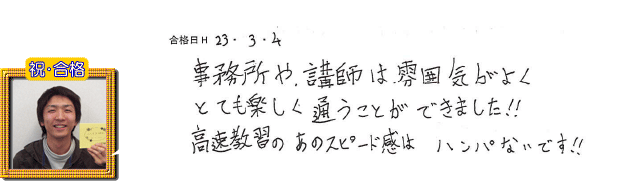 合格日H 23・3・4
祝・合格
事務所や、講師は、雰囲気がよく
とても楽しく通うことができました!!
高速教習の あのスピード感は ハンパないです!!